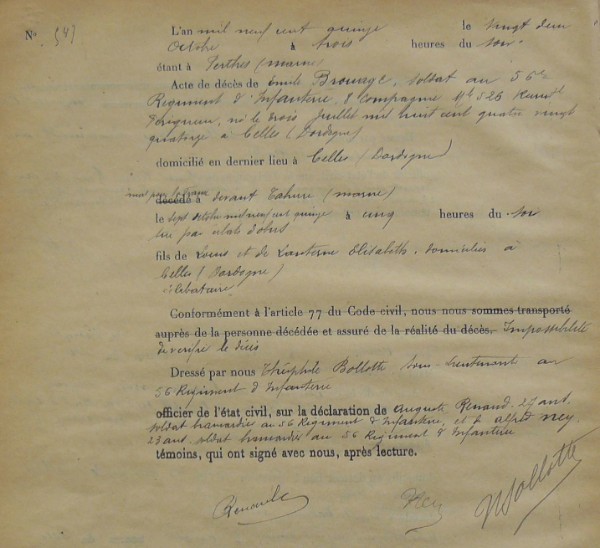 N° 547
L'an mil neuf cent quinze le vingt deux
Octobre à trois heures du soir
étant à Perthes (Marne)
Acte de décès de Emile Brouage, soldat au 56e
Régiment d'Infanterie, 8 Compagnie Mle 526 Recrut
Périgueux, né le trois juillet mil huit cent quatre vingt
quatorze à Celles (Dordogne)
domicilié en dernier lieu à Celles (Dordogne)
mort pour la France
décédé à devant Tahure (Marne)
le sept octobre mil neuf cent quinze à cinq heures du soir
tué par éclats d'obus
fils de Louis et de Lanterne Elisabeth, domiciliés à
Celles (Dordogne)
célibataire
Conformément à l'article 77 du Code civil, nous nous sommes transporté
auprès de la personne décédée et assuré de la réalité du décès. Impossibilité
de vérifier le décès
Dressé par nous Théophile Bollotte sous-lieutenant au
56 Régiment d'Infanterie
officier de l'état civil, sur la déclaration de Auguste Renaud, 29 ans,
soldat brancardier au 56 Régiment d'Infanterie, et de Alfred Ney,
23 ans soldat brancardier au 56 Régiment d'Infanterie
témoins, qui ont signé avec nous, après lecture.
Renaud Ney Bollotte